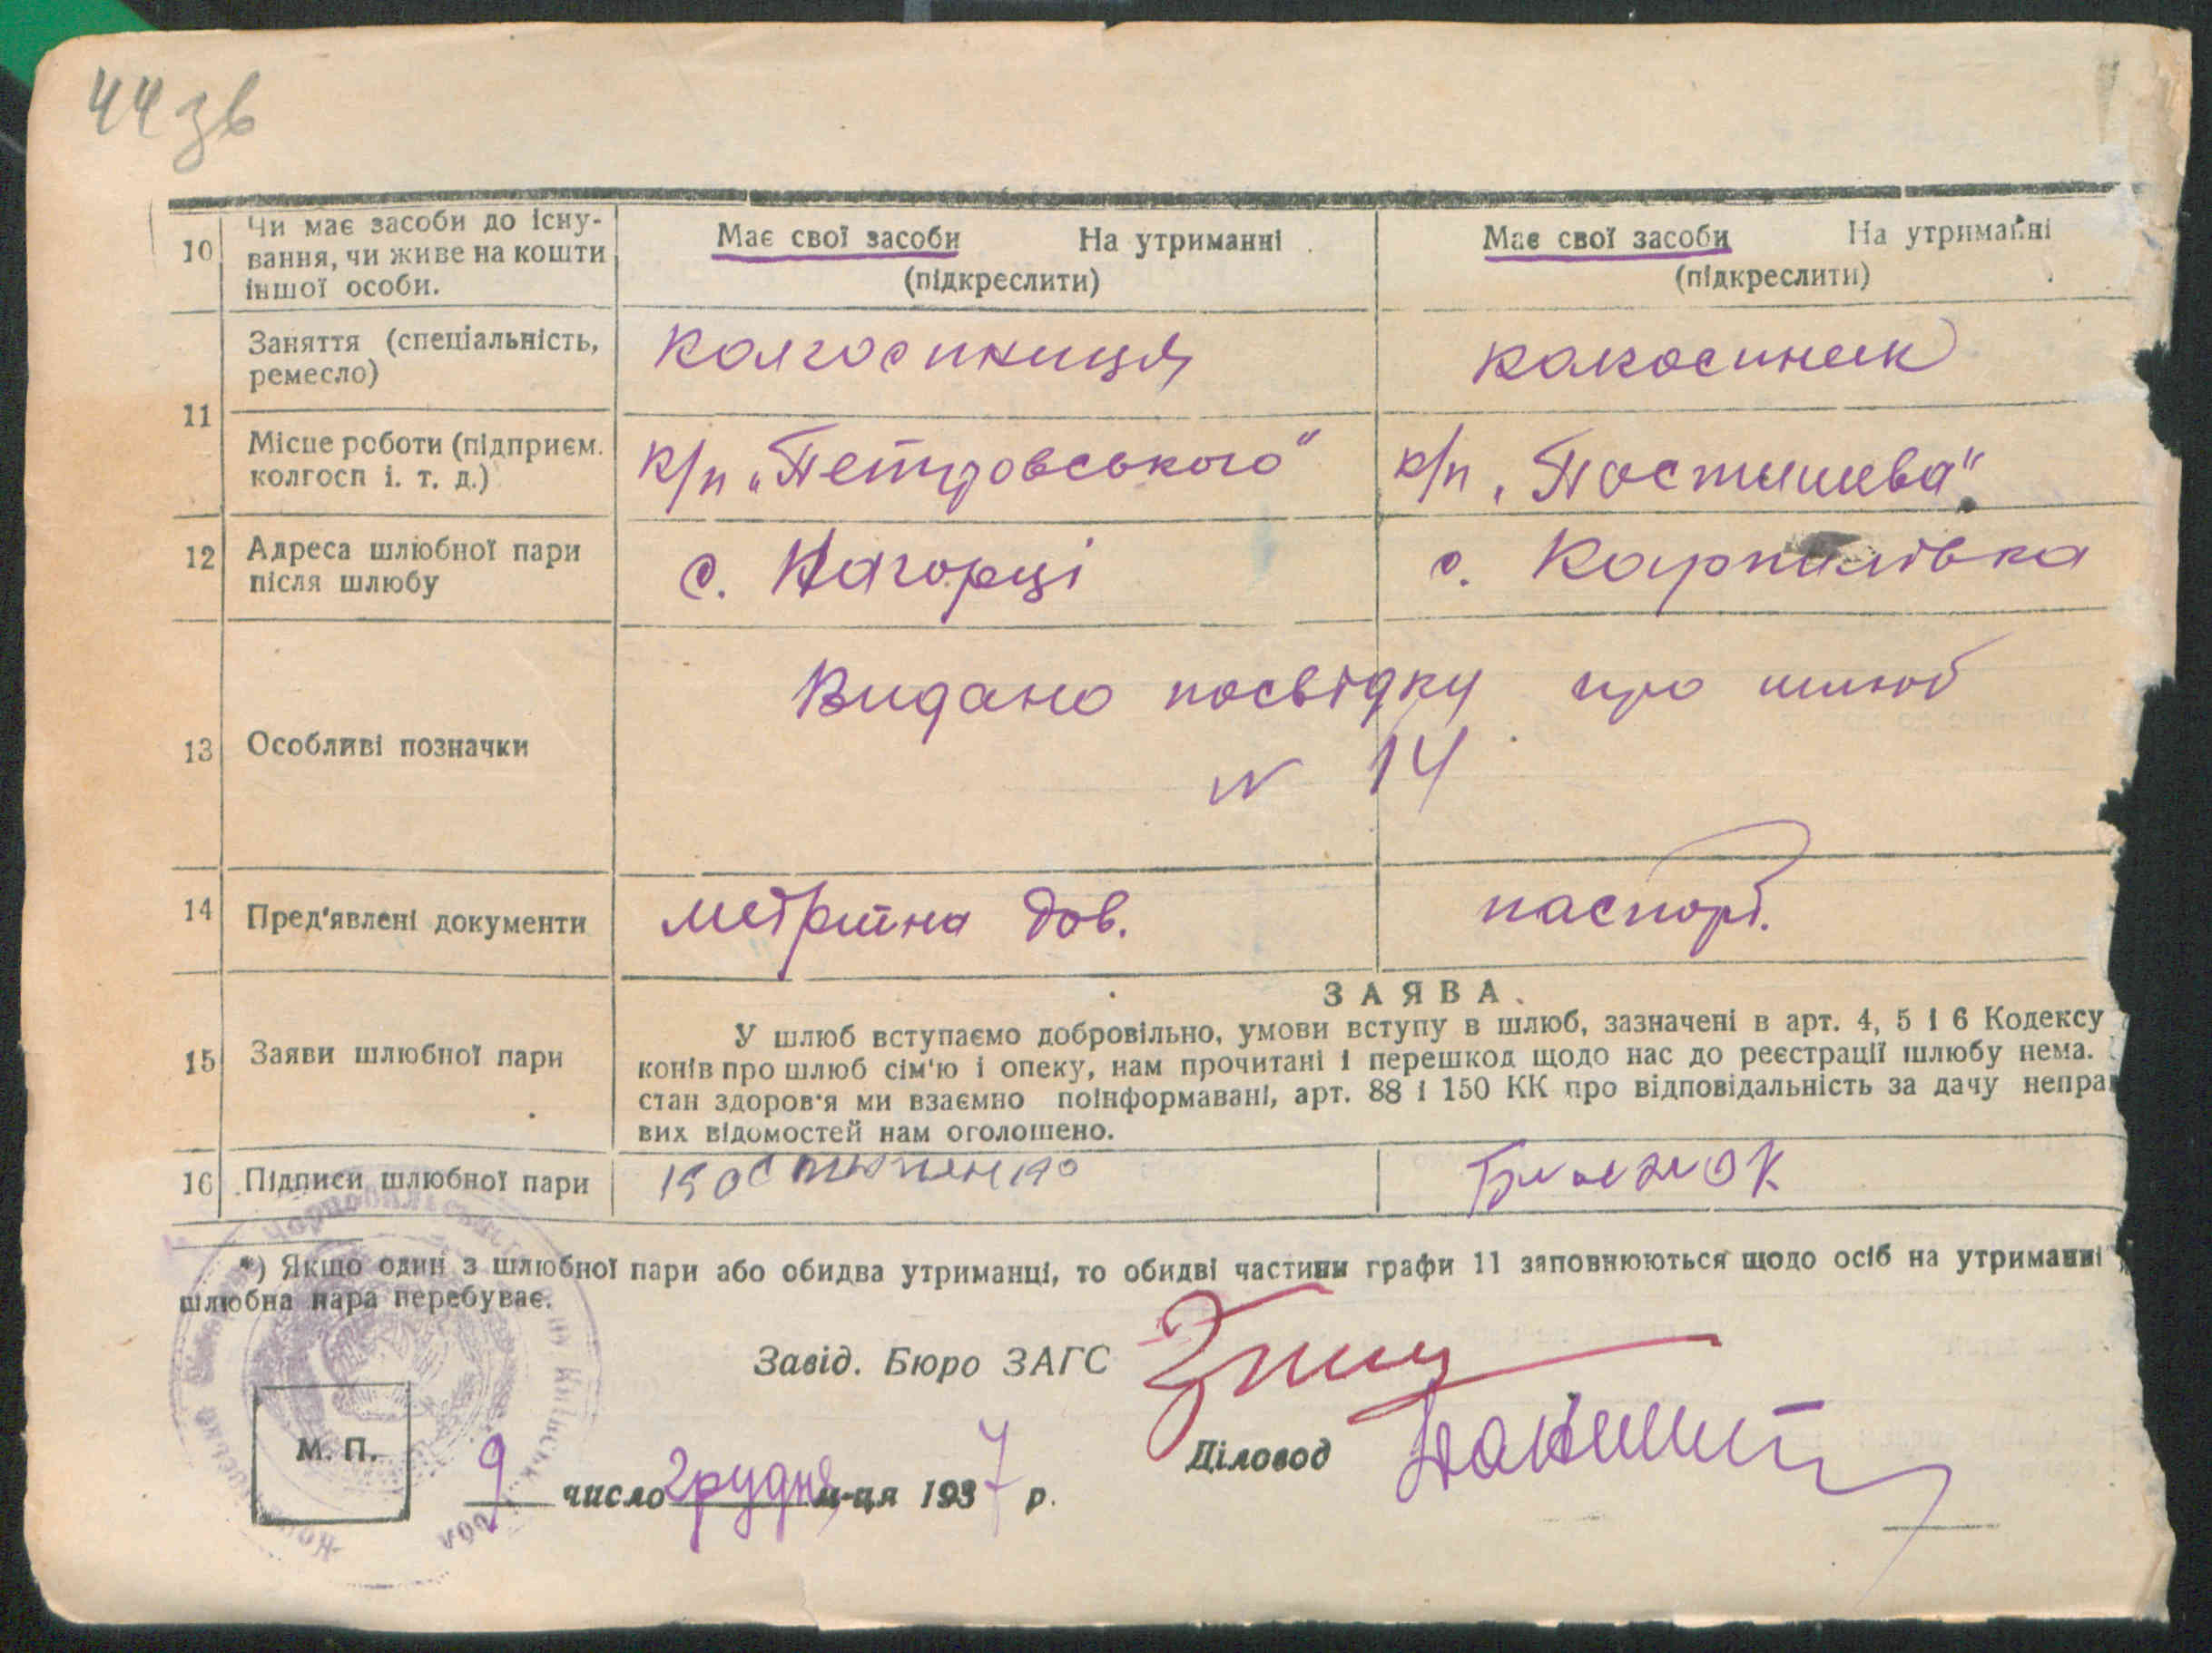 44 зв
10 Чи має засоби до існу-
вання, чи живе на кошти
іншої особи.
Має свої засоби На утриманні
(підкреслити)
Має свої засоби На утриманні
(підкреслити)
11
Заняття (спеціальність,
ремесло)
колгоспниця
колхоспник
Місце роботи (підприєм.
колгосп і. т. д.)
к/п „Петровського"
к/п „Постишева"
12 Адреса шлюбної пари
після шлюбу
с. Нагорці
с. Карпилівка
13 Особливі позначки
Видано посвідку про шлюб
N 14
14 Пред'явлені документи
метрична дов.
паспорт.
15 Заяви шлюбної пари
ЗАЯВА.
У шлюб вступаємо добровільно, умови вступу в шлюб, зазначені в арт. 4, 5 і 6 Кодексу
конів про шлюб сім'ю і опеку, нам прочитані і перешкод щодо нас до реєстрації шлюбу нема.
стан здоров'я ми взаємно поінформавані, арт. 88 і 150 КК про відповідальність за дачу неправ
вих відомостей нам оголошено.
16 Підписи шлюбної пари
*) Якщо один з шлюбної пари або обидва утриманці, то обидві частини графи 11 заповнюються щодо осіб на утриманні
шлюбна пара перебуває.
Завід. Бюро ЗАГС
М. П.
Діловод
9 число грудня м-ця 1937 р.